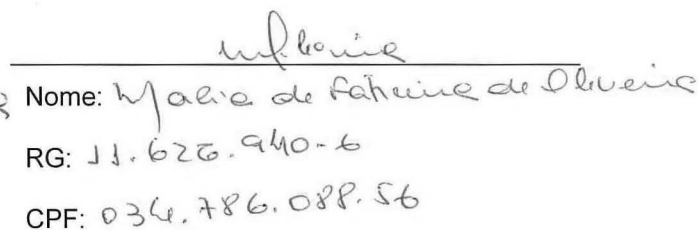 Nome: Maria de Fátima de Oliveira
RG: 11.626.940-6
CPF: 034.786.088.56